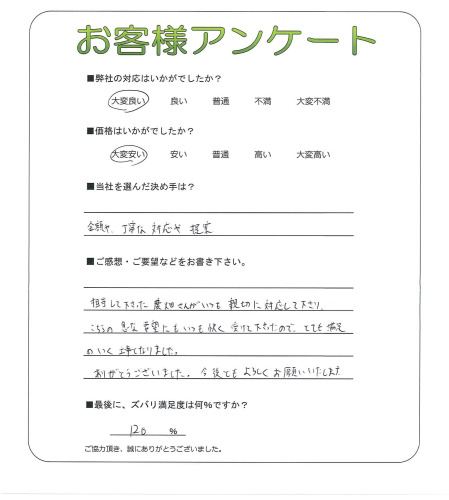 お客様アンケート
■弊社の対応はいかがでしたか？
大変良い 良い 普通 不満 大変不満
■価格はいかがでしたか？
大変安い 安い 普通 高い 大変高い
■当社を選んだ決め手は？
金額や、丁寧な対応や提案
■ご感想・ご要望などをお書き下さい。
担当して下さった 農畑さんがいつも 親切に対応して下さり、
こちらの急な要望にもいつも快く受けて下さったので、とても満足
のいく工事になりました。
ありがとうございました。今後ともよろしくお願いいたします
■最後に、ズバリ満足度は何％ですか？
120 ％
ご協力頂き、誠にありがとうございました。